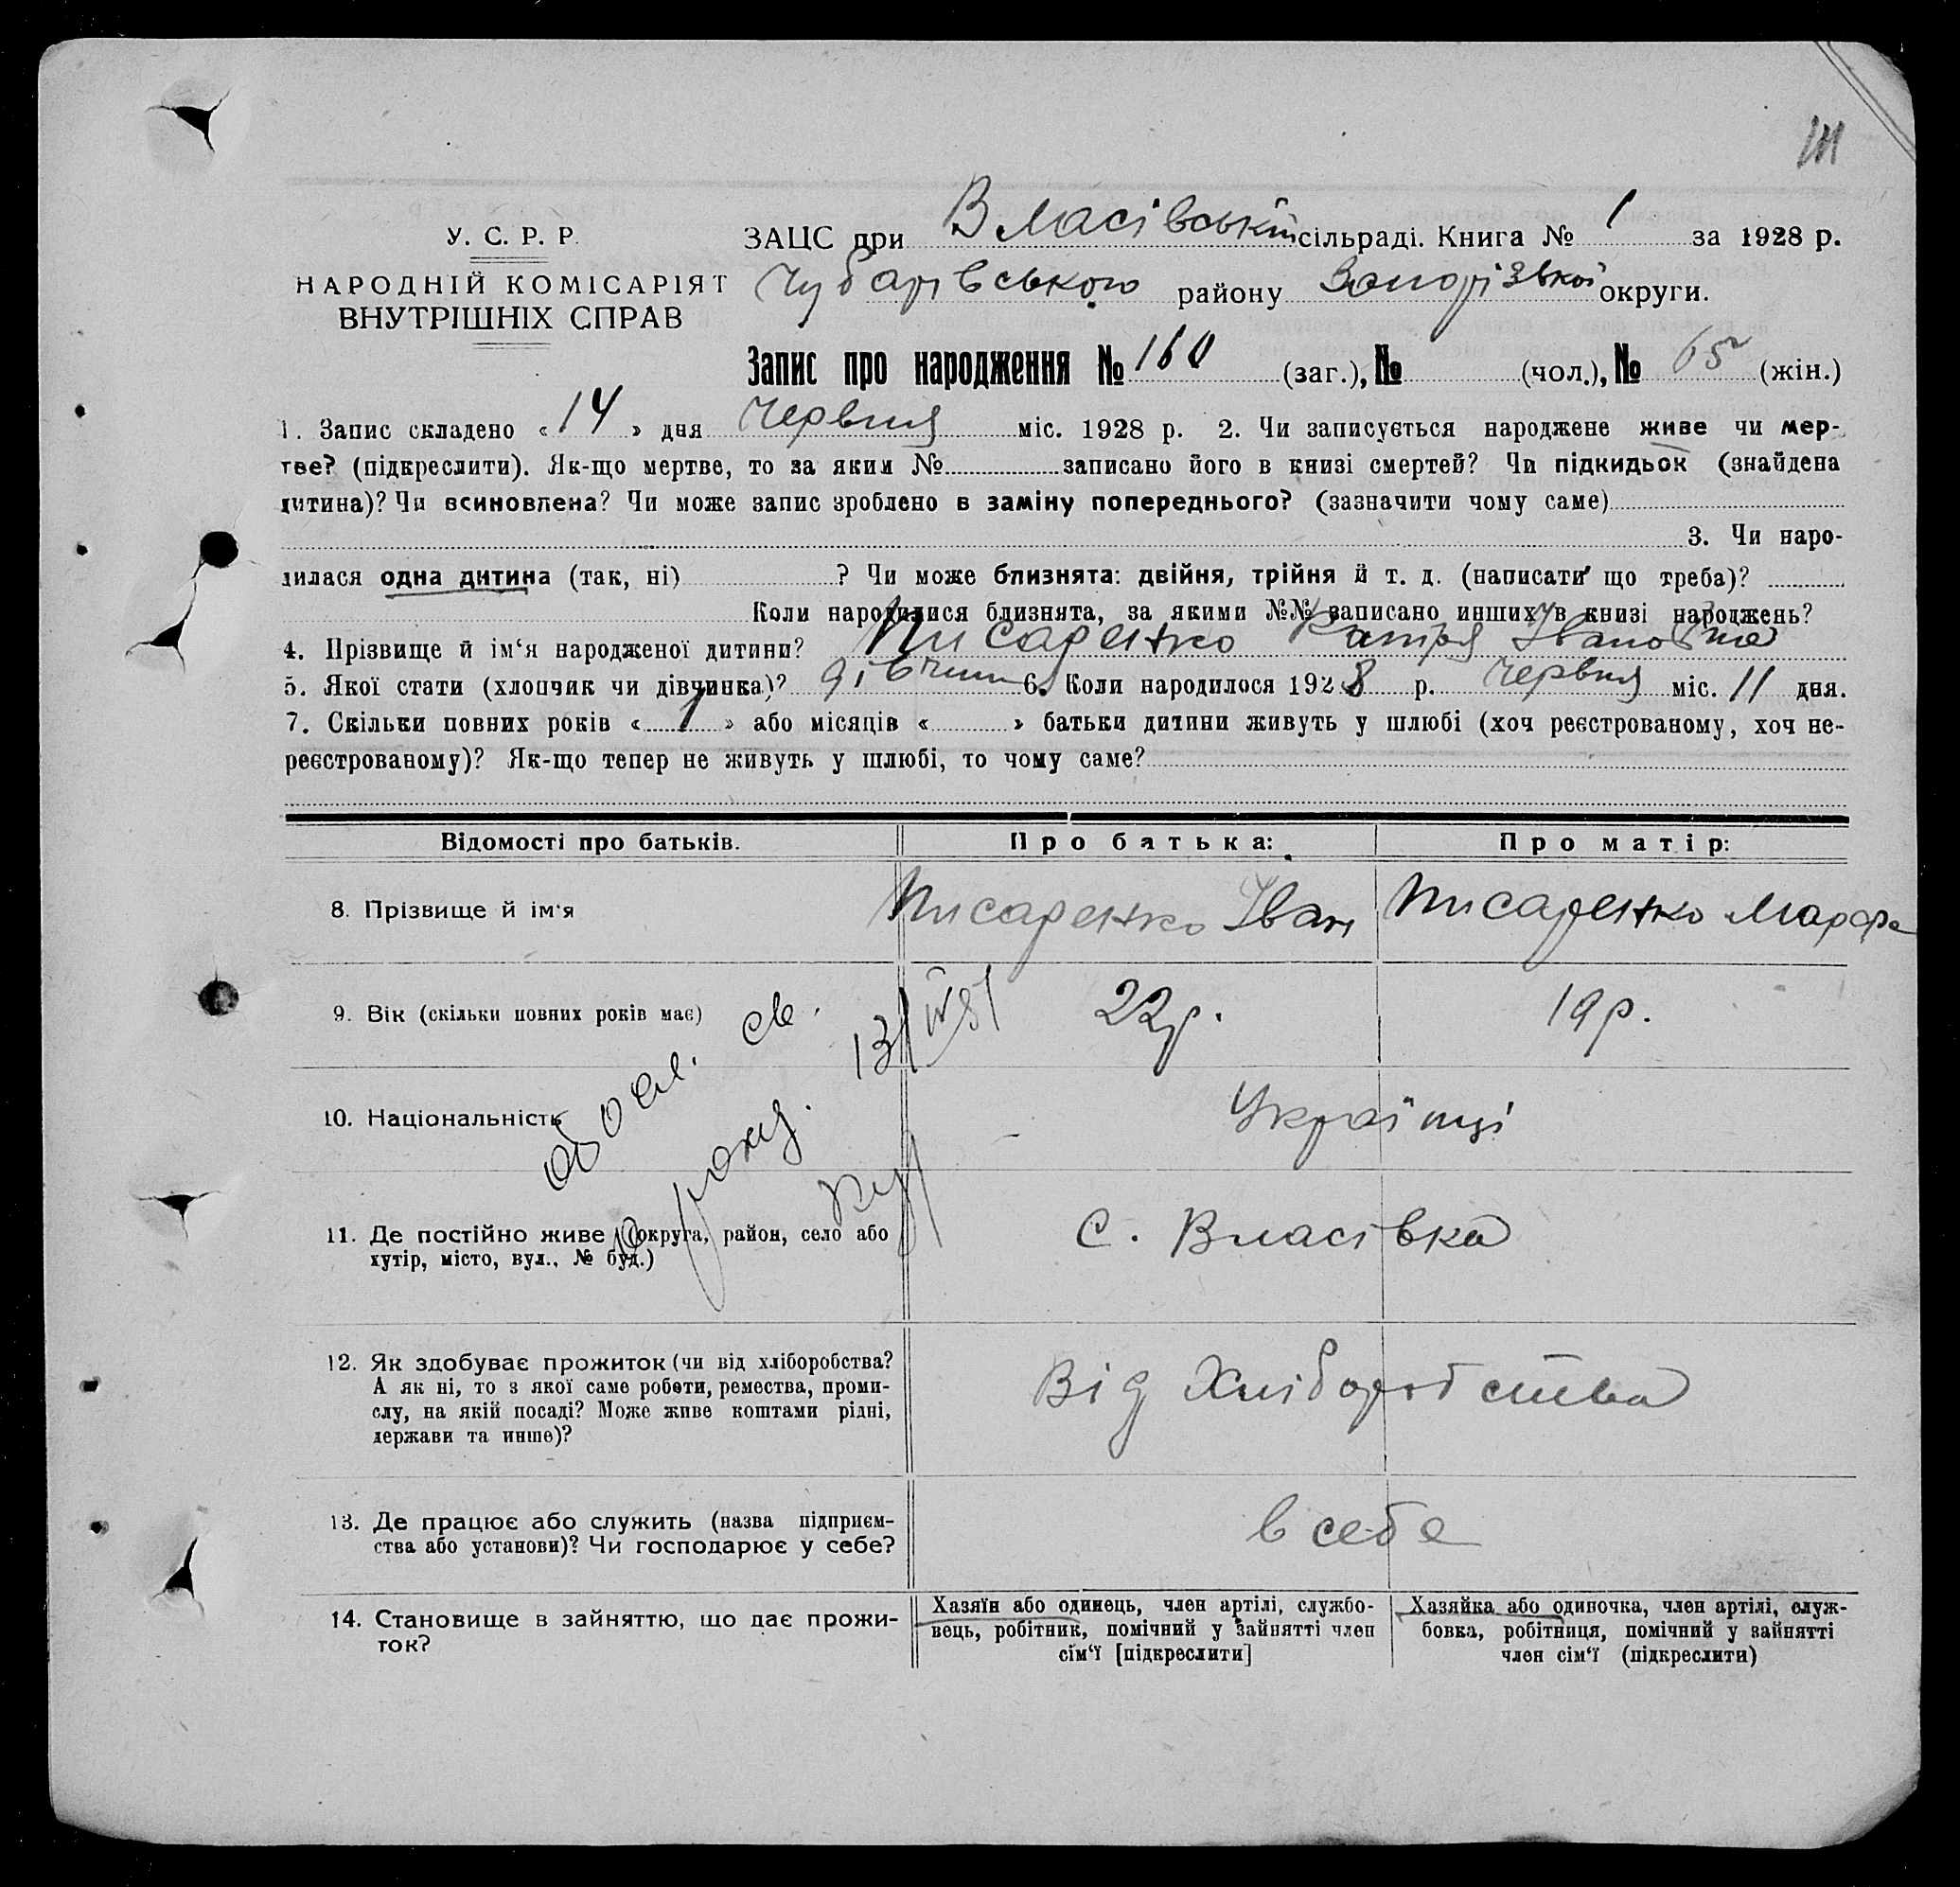 111
У. С. Р. Р.
НАРОДНІЙ КОМІСАРІЯТ
ВНУТРІШНІХ СПРАВ
ЗАЦС при Власівській сільраді. Книга № 1 за 1928 р.
Чубарівського району Запорізької округи.
Запис про народження № 160 (заг.), № (чол.), № 65 (жін.)
1. Запис складено « 14 » дня Червня міс. 1928 р. 2. Чи записується народжене живе чи мер-
тве? (підкреслити). Як-що мертве, то за яким № записано його в книзі смертей? Чи підкидьок (знайдена
дитина)? Чи всиновлена? Чи може запис зроблено в заміну попереднього? (зазначити чому саме)
3. Чи наро-
дилася одна дитина (так, ні) ? Чи може близнята: двійня, трійня й т. д. (написати що треба)?
Коли народилися близнята, за якими №№ записано инших в книзі народжень?
4. Прізвище й ім‘я народженої дитини? Писаренко Катря Івановна
5. Якої стати (хлопчик чи дівчинка)? дівчин 6. Коли народилося 1928 р. Червня міс. 11 дня.
7. Скільки повних років « 1 » або місяців « » батьки дитини живуть у шлюбі (хоч реєстрованому, хоч не-
реєстрованому)? Як-що тепер не живуть у шлюбі, то чому саме?
Відомості про батьків. Про батька: Про матір:
8. Прізвище й ім‘я Писаренко Іван Писаренко Марфа
9. Вік (скільки повних років має) 22р. 19р.
10. Національність Українці
11. Де постійно живе (округа, район, село або
хутір, місто, вул., № буд.)
С. Власівка
12. Як здобуває прожиток (чи від хліборобства?
А як ні, то з якої саме роботи, ремества, проми-
слу, на якій посаді? Може живе коштами рідні,
держави та инше)?
Від Хліборобства
13. Де працює або служить (назва підприєм-
ства або установи)? Чи господарює у себе?
в себе
14. Становище в зайняттю, що дає прожи-
ток?
Хазяїн або одинець, член артілі, службо-
вець, робітник, помічний у зайнятті член
сім‘ї [підкреслити]
Хазяйка або одиночка, член артілі, служ-
бовка, робітниця, помічний у зайнятті
член сім‘ї (підкреслити)